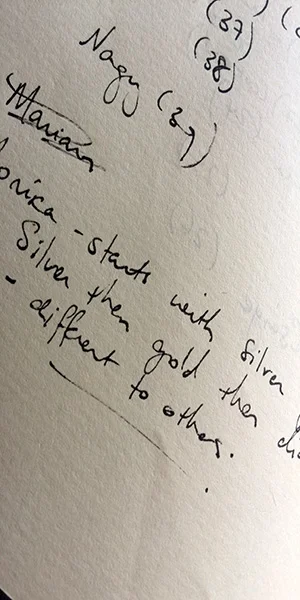 (37)
(38)
Nagy (39)
Mariann
orica - starts with silver
Silver then gold then di
- different to others.